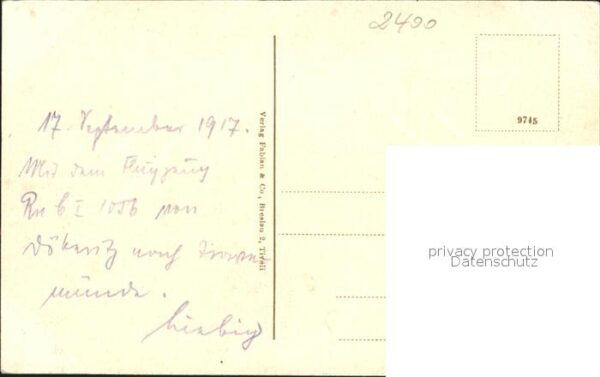 2400
9745
17. September 1917.
Mit dem Flugzeug
Ru C I 1056 von
Döberitz nach Swine-
münde.
Liebig
Verlag Fabian & Co., Breslau 2, Tivoli
privacy protection
Datenschutz